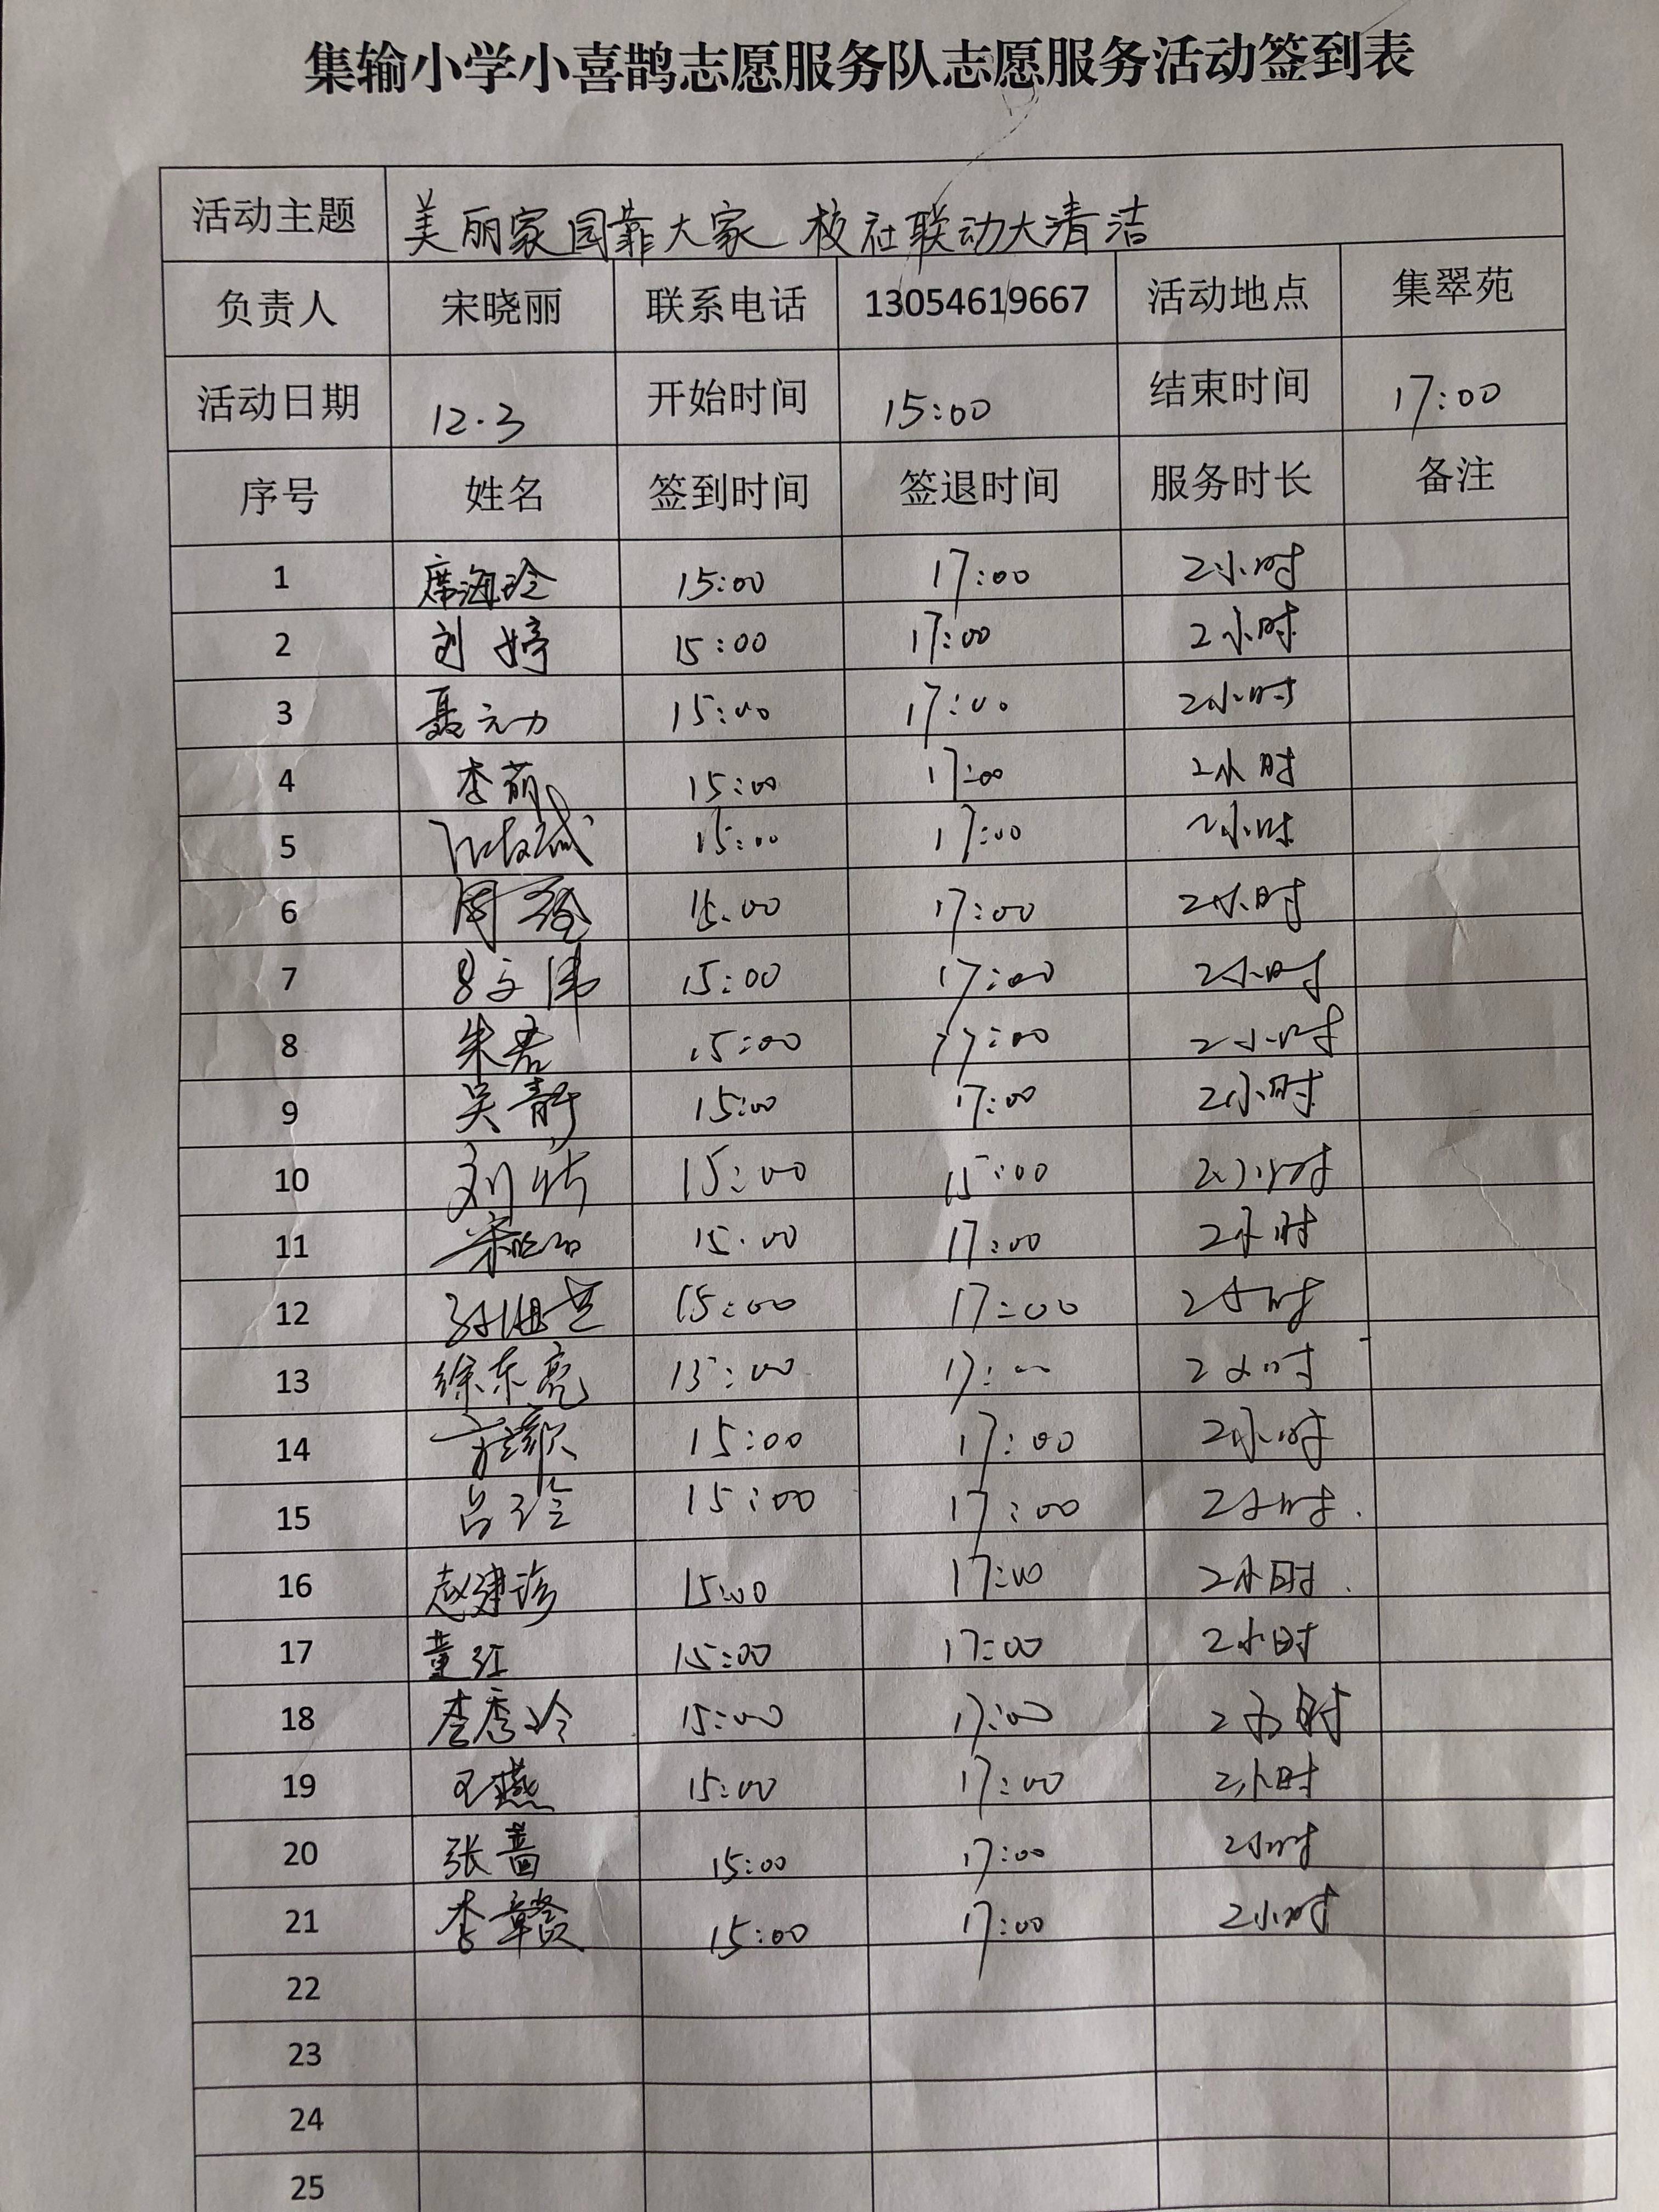 集输小学小喜鹊志愿服务队志愿服务活动签到表
活动主题 美丽家园靠大家 校社联动大清洁
负责人 宋晓丽 联系电话 13054619667 活动地点 集翠苑
活动日期 12.3 开始时间 15:00 结束时间 17:00
序号 姓名 签到时间 签退时间 服务时长 备注
1 席海玲 15:00 17:00 2小时
2 刘婷 15:00 17:00 2小时
3 聂元力 15:00 17:00 2小时
4 李萌 15:00 17:00 2小时
5 15:00 17:00 2小时
6 15:00 17:00 2小时
7 15:00 17:00 2小时
8 朱君 15:00 17:00 2小时
9 吴静 15:00 17:00 2小时
10 15:00 15:00 2小时
11 15:00 17:00 2小时
12 15:00 17:00 2小时
13 徐东亮 15:00 17:00 2小时
14 15:00 17:00 2小时
15 吕玲 15:00 17:00 2小时
16 15:00 17:00 2小时
17 董红 15:00 17:00 2小时
18 李秀玲 15:00 17:00 2小时
19 王燕 15:00 17:00 2小时
20 张蔷 15:00 17:00 2小时
21 李赣 15:00 17:00 2小时
22
23
24
25